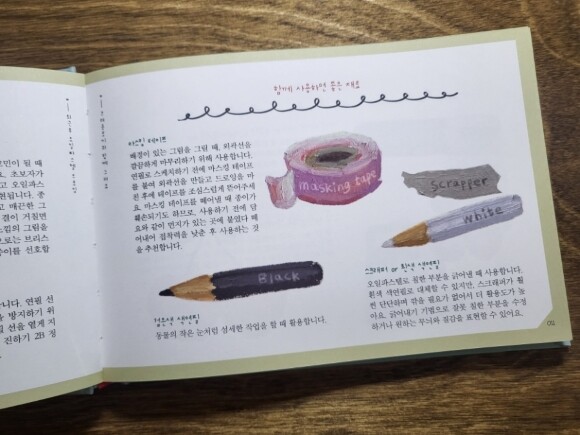 민이 될 때
요. 초보자가
고 오일파스
천됩니다. 종
고 매끈한 그
결이 거칠면
느낌의 그림을
으로는 브리스
종이를 선호합
니다. 연필 선
을 방지하기 위
선을 옅게 지
진하기 2B 정
함께 사용하면 좋은 재료
마스킹 테이프
배경이 있는 그림을 그릴 때, 외곽선을
깔끔하게 마무리하기 위해 사용합니다.
연필로 스케치하기 전에 마스킹 테이프
를 붙여 외곽선을 만들고 드로잉을 마
친 후에 테이프를 조심스럽게 뜯어주세
요. 마스킹 테이프를 떼어낼 때 종이가
훼손되기도 하므로, 사용하기 전에 담
요와 같이 먼지가 있는 곳에 붙였다 떼
어내어 접착력을 낮춘 후 사용하는 것
을 추천합니다.
masking tape
scrapper
white
Black
검은색 색연필
동물의 작은 눈처럼 섬세한 작업을 할 때 활용합니다.
스크래퍼 or 흰색 색연필
오일파스텔로 칠한 부분을 긁어낼 때 사용합니다.
흰색 색연필로 대체할 수 있지만, 스크래퍼가 훨
씬 단단하며 깎을 필요가 없어서 더 활용도가 높
아요. 긁어내기 기법으로 잘못 칠한 부분을 수정
하거나 원하는 무늬와 질감을 표현할 수 있어요.